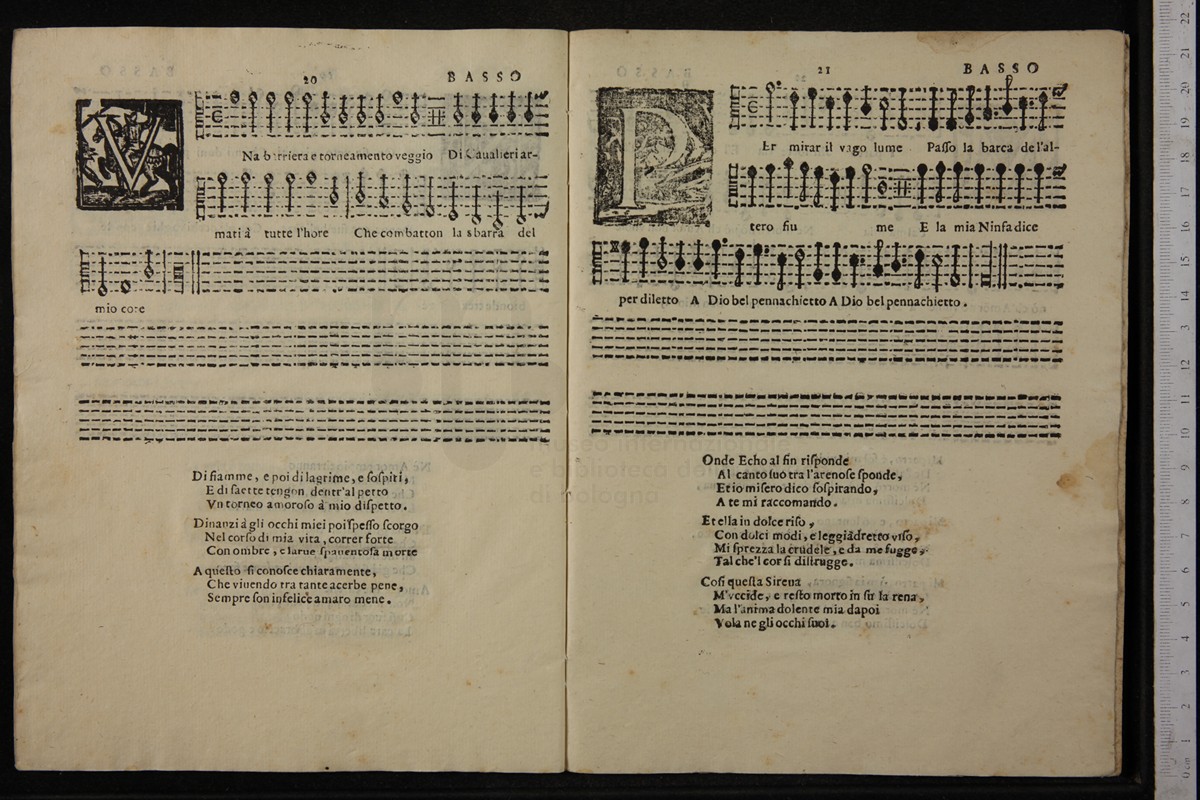 20 BASSO
VNa barriera e torneamento veggio Di Caualieri ar-
mati à tutte l'hore Che combatton la sbarra del
mio core
Di fiamme, e poi di lagrime, e ſoſpiri,
E di ſaette tengon dentr'al petto
Vn torneo amoroſo à mio diſpetto.
Dinanzi à gli occhi miei poi ſpeſſo ſcorgo
Nel corſo di mia vita, correr forte
Con ombre, e larue ſpauentoſa morte
A queſto ſi conoſce chiaramente,
Che viuendo tra tante acerbe pene,
Sempre ſon infelice amaro mene.
21 BASSO
PEr mirar il vago lume Paſſo la barca del'al-
tero fiu me E la mia Ninfa dice
per diletto A Dio bel pennachietto A Dio bel pennachietto.
Onde Echo al fin riſponde
Al canto ſuo tra l'arenoſe ſponde,
Et io miſero dico ſoſpirando,
A te mi raccomando.
Et ella in dolce riſo,
Con dolci modi, e leggiadretto viſo,
Mi ſprezza la crudele, e da me fugge,
Tal che'l cor ſi diſtrugge.
Coſi queſta Sirena
M'vccide, e reſto morto in ſu la rena,
Ma l'anima dolente mia dapoi
Vola ne gli occhi ſuoi.